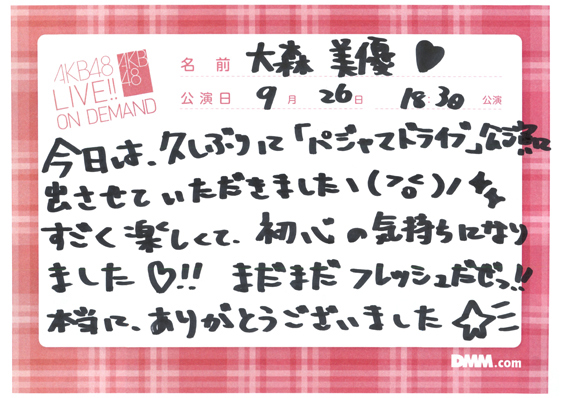 AKB48
LIVE!!
ON DEMAND
AKB
48
名前 大森 美優 ♥
公演日 9月 26日 18:30 公演
今日は、久しぶりに「パジャマドライブ」公演に
出させていただきました\(>o<)/
すごく楽しくて、初心の気持ちになり
ました♡!! まだまだフレッシュだぜっ!!
本当に、ありがとうございました☆
DMM.com